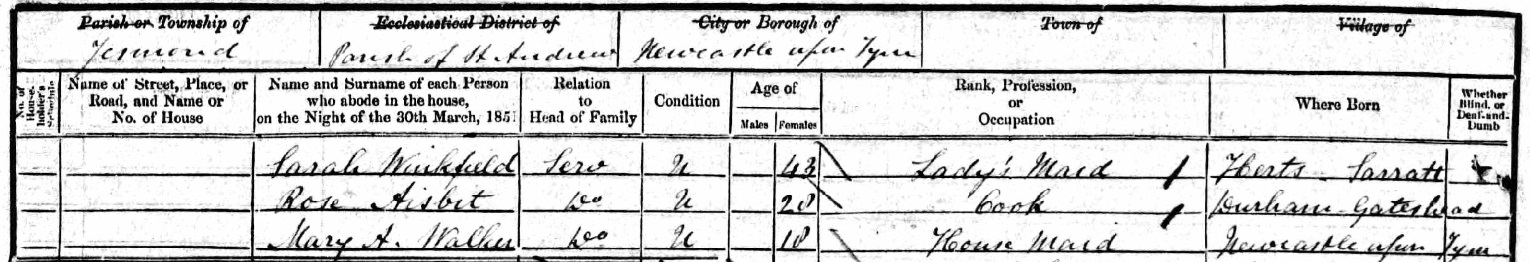 Parish or Township of Ecclesiastical District of City or Borough of Town of Village of
Jesmond Parish of St. Andrew Newcastle upon Tyne
No. of House-holder's Schedule Name of Street, Place, or Road, and Name or No. of House Name and Surname of each Person who abode in the house, on the Night of the 30th March, 1851 Relation to Head of Family Condition Age of Males Females Rank, Profession, or Occupation Where Born Whether Blind, or Deaf-and-Dumb
Sarah Winkfield Serv U 43 Lady's Maid Herts Sarratt
Rose Nisbit Do U 28 Cook Durham Gateshead
Mary A. Walker Do U 18 House Maid Newcastle upon Tyne